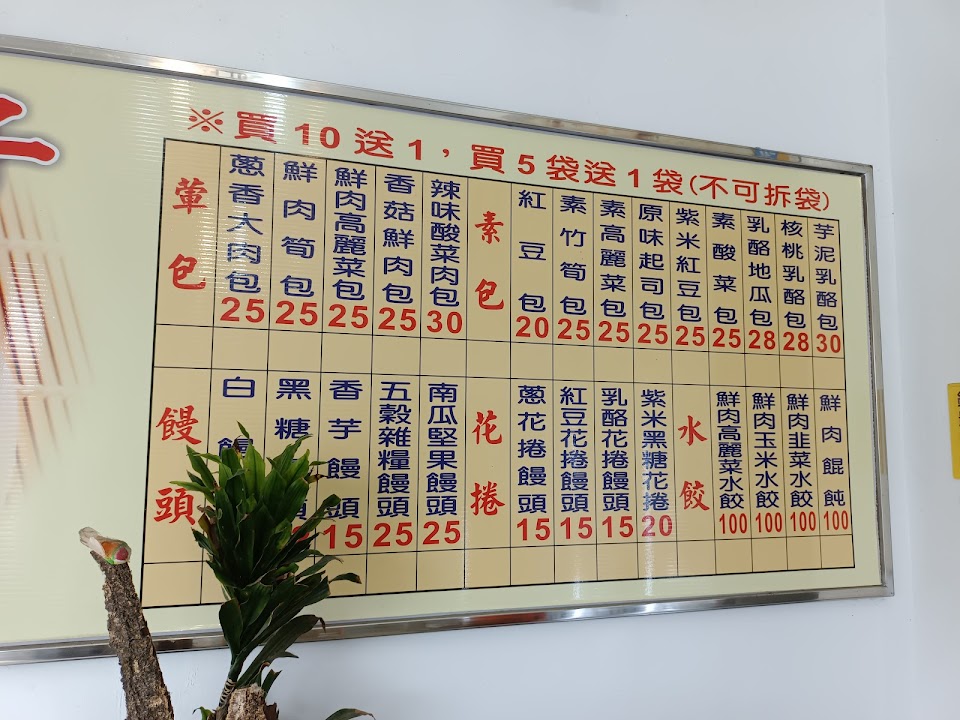 ※買10送1，買5袋送1袋(不可拆袋)
葷包
蔥香大肉包 25
鮮肉筍包 25
鮮肉高麗菜包 25
香菇鮮肉包 25
辣味酸菜肉包 30
素包
紅豆包 20
素竹筍包 25
素高麗菜包 25
原味起司包 25
紫米紅豆包 25
素酸菜包 25
乳酪地瓜包 28
核桃乳酪包 28
芋泥乳酪包 30
饅頭
白饅
黑糖 頭
香芋饅頭 15
五穀雜糧饅頭 25
南瓜堅果饅頭 25
花捲
蔥花捲饅頭 15
紅豆花捲饅頭 15
乳酪花捲饅頭 15
紫米黑糖花捲 20
水餃
鮮肉高麗菜水餃 100
鮮肉玉米水餃 100
鮮肉韭菜水餃 100
鮮肉餛飩 100